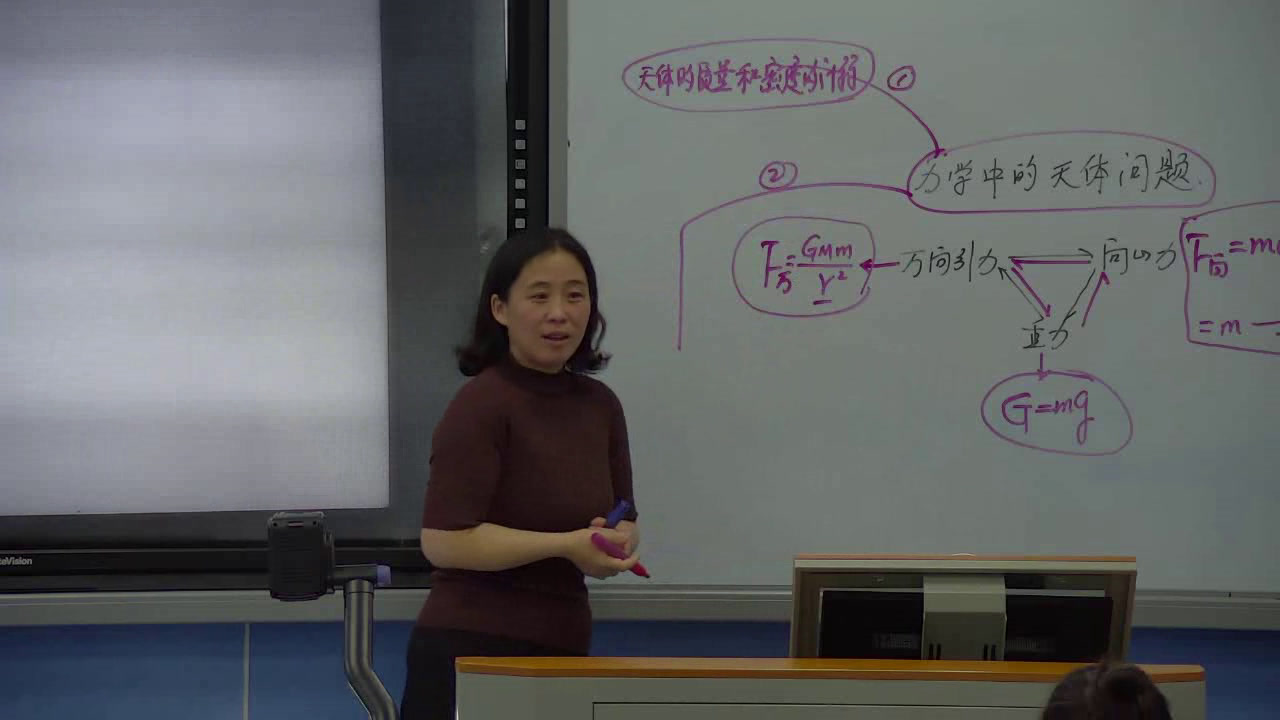 天体的质量和密度的计算
①
力学中的天体问题.
②
F万=GMm/r²
万向引力
向心力
F向=m
=m
重力
G=mg
teVision